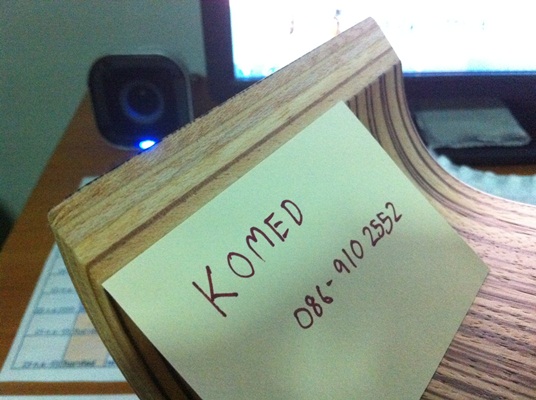 KOMED
086-910 2552